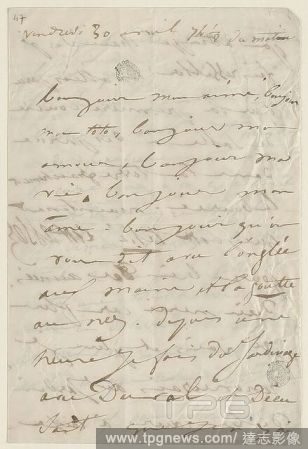 47
Vendredi 30 avril 7h ½ du matin
bonjour mon aimé, bonjour
mon toto, bonjour mon
amour, bonjour ma
vie, bonjour mon
âme. bonjour qu'on
vous dit avec l'onglée
aux mains et la goutte
au nez. depuis une
heure je fais du jardinage
avec Duval et Dieu
sait
www.tpgnews.com/ 達志影像